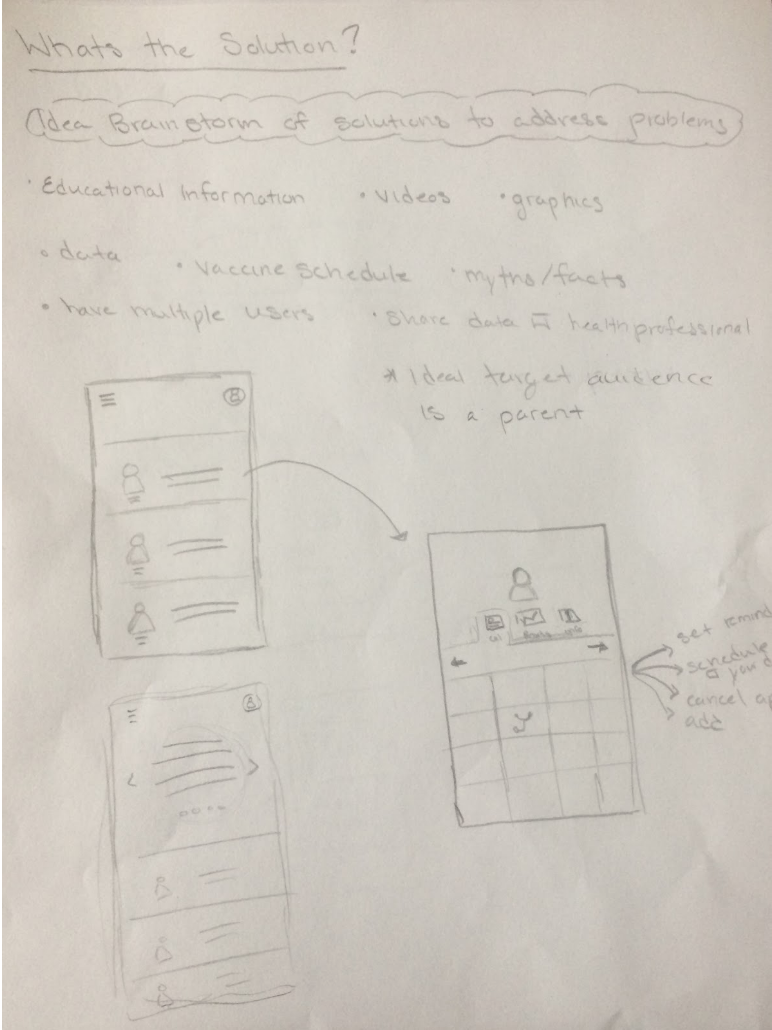 Whats the Solution?
Idea Brainstorm of solutions to address problems
• Educational Information • videos • graphics
• data • vaccine schedule • myths/facts
• have multiple users • share data w healthprofessional
* Ideal target audience
is a parent
cal
set remind
schedule
you
cancel ap
add